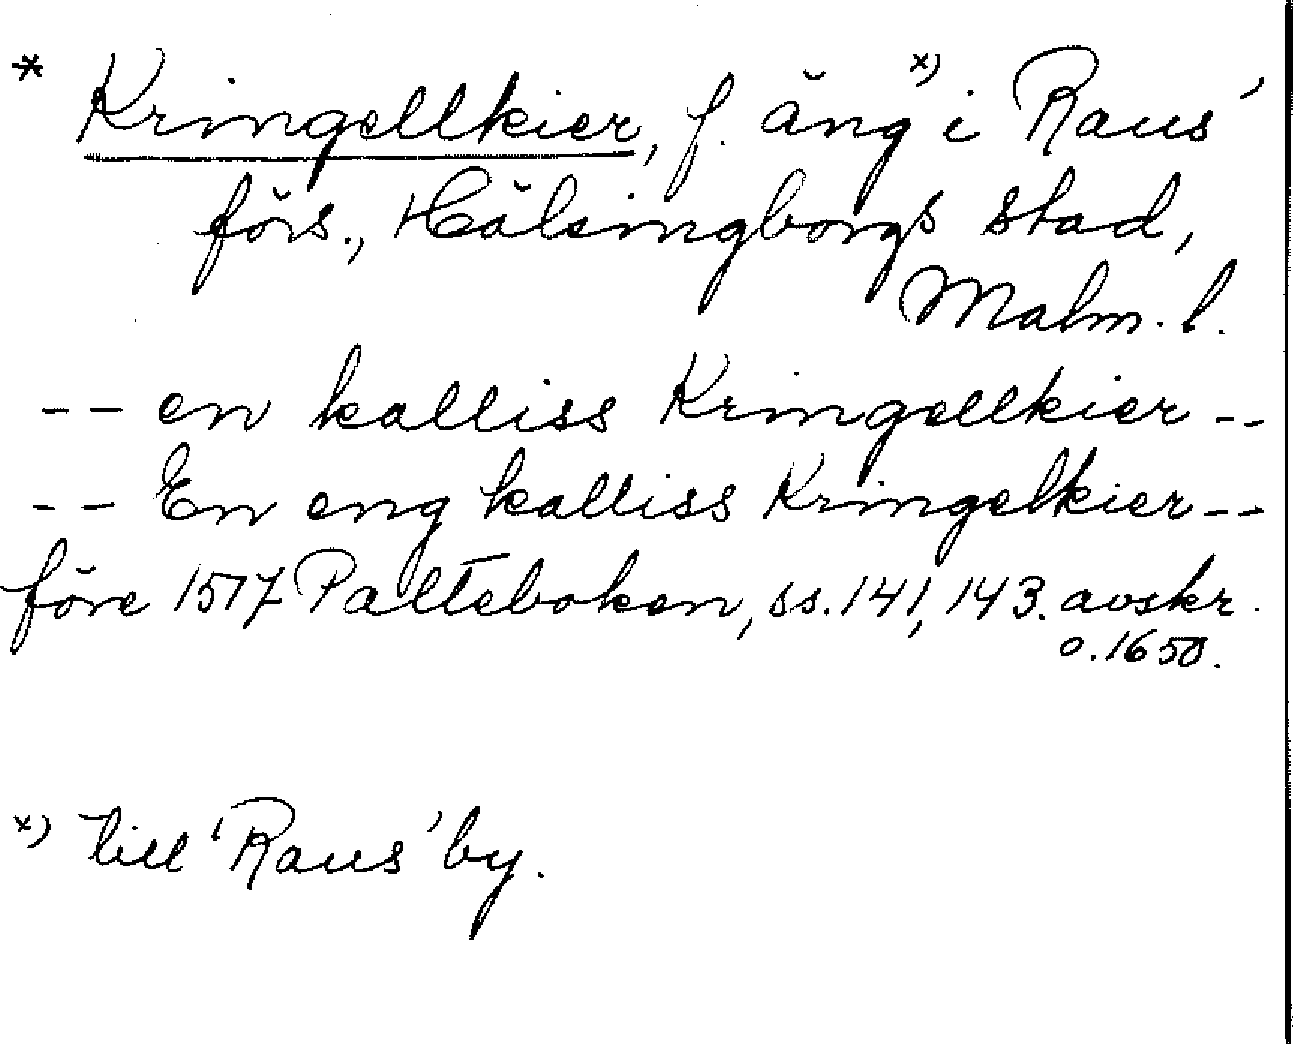 * Kringellkier, f. äng x) i Raus'
förs., Hälsingborgs stad,
Malm. l.
-- en kalliss Kringellkier --
-- En eng kalliss Kringelkier --
före 1517 Palteboken, ss. 141, 143. avskr.
o. 1650.
x) till 'Raus' by.